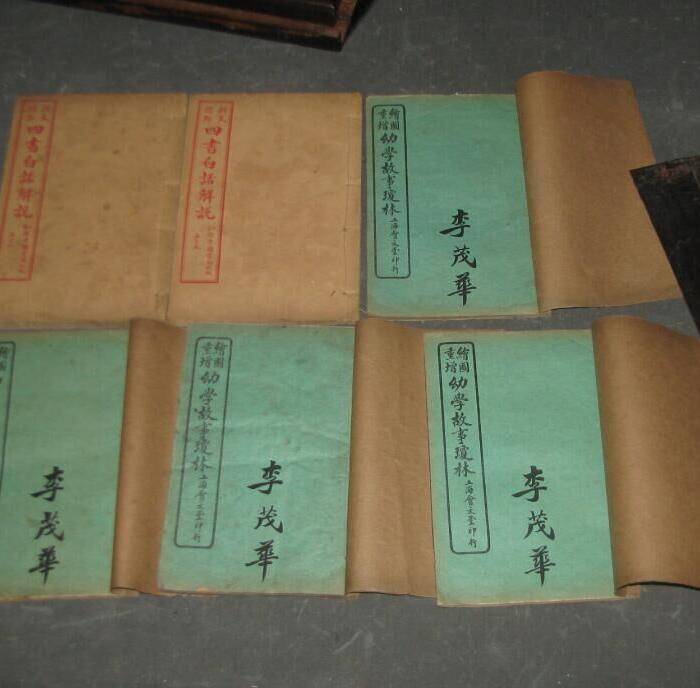 四書白話解説
四書白話解説
繪圖
重增
幼學故事瓊林
上海會文堂印行
李茂華
繪圖
李茂華
繪圖
重增
幼學故事瓊林
上海會文堂印行
李茂華
繪圖
重增
幼學故事瓊林
上海會文堂印行
李茂華